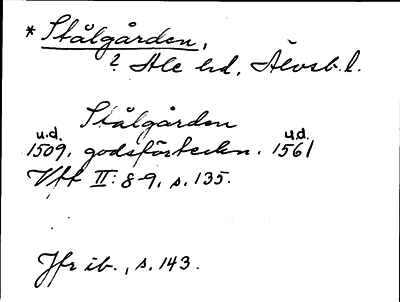 * Stålgården,
? Ale hd, Älvsb. l.
Stålgården
u.d. u.d.
1509, godsförteckn. 1561
Vff II: 8-9, s. 135.
Jfr ib., s. 143.